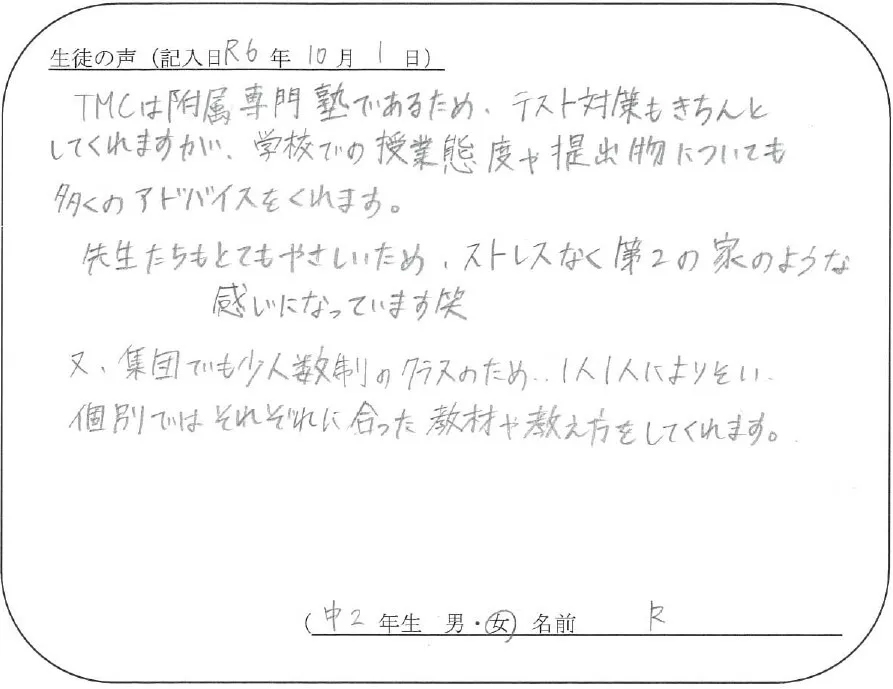 生徒の声（記入日R6年10月1日）
TMCは附属専門塾であるため、テスト対策もきちんと
してくれますがい、学校での授業態度や提出物についても
多くのアドバイスをくれます。
先生たちもとてもやさしいため、ストレスなく第2の家のような
感じになっています笑
又、集団でも少人数制のクラスのため、1人1人によりそい、
個別ではそれぞれに合った教材や教え方をしてくれます。
（中2年生 男・女）名前 R